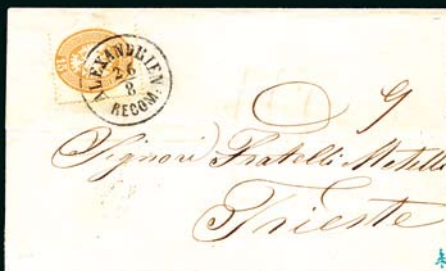 ALEXANDRIEN
26
8
RECOM:
Signori Fratelli
Trieste